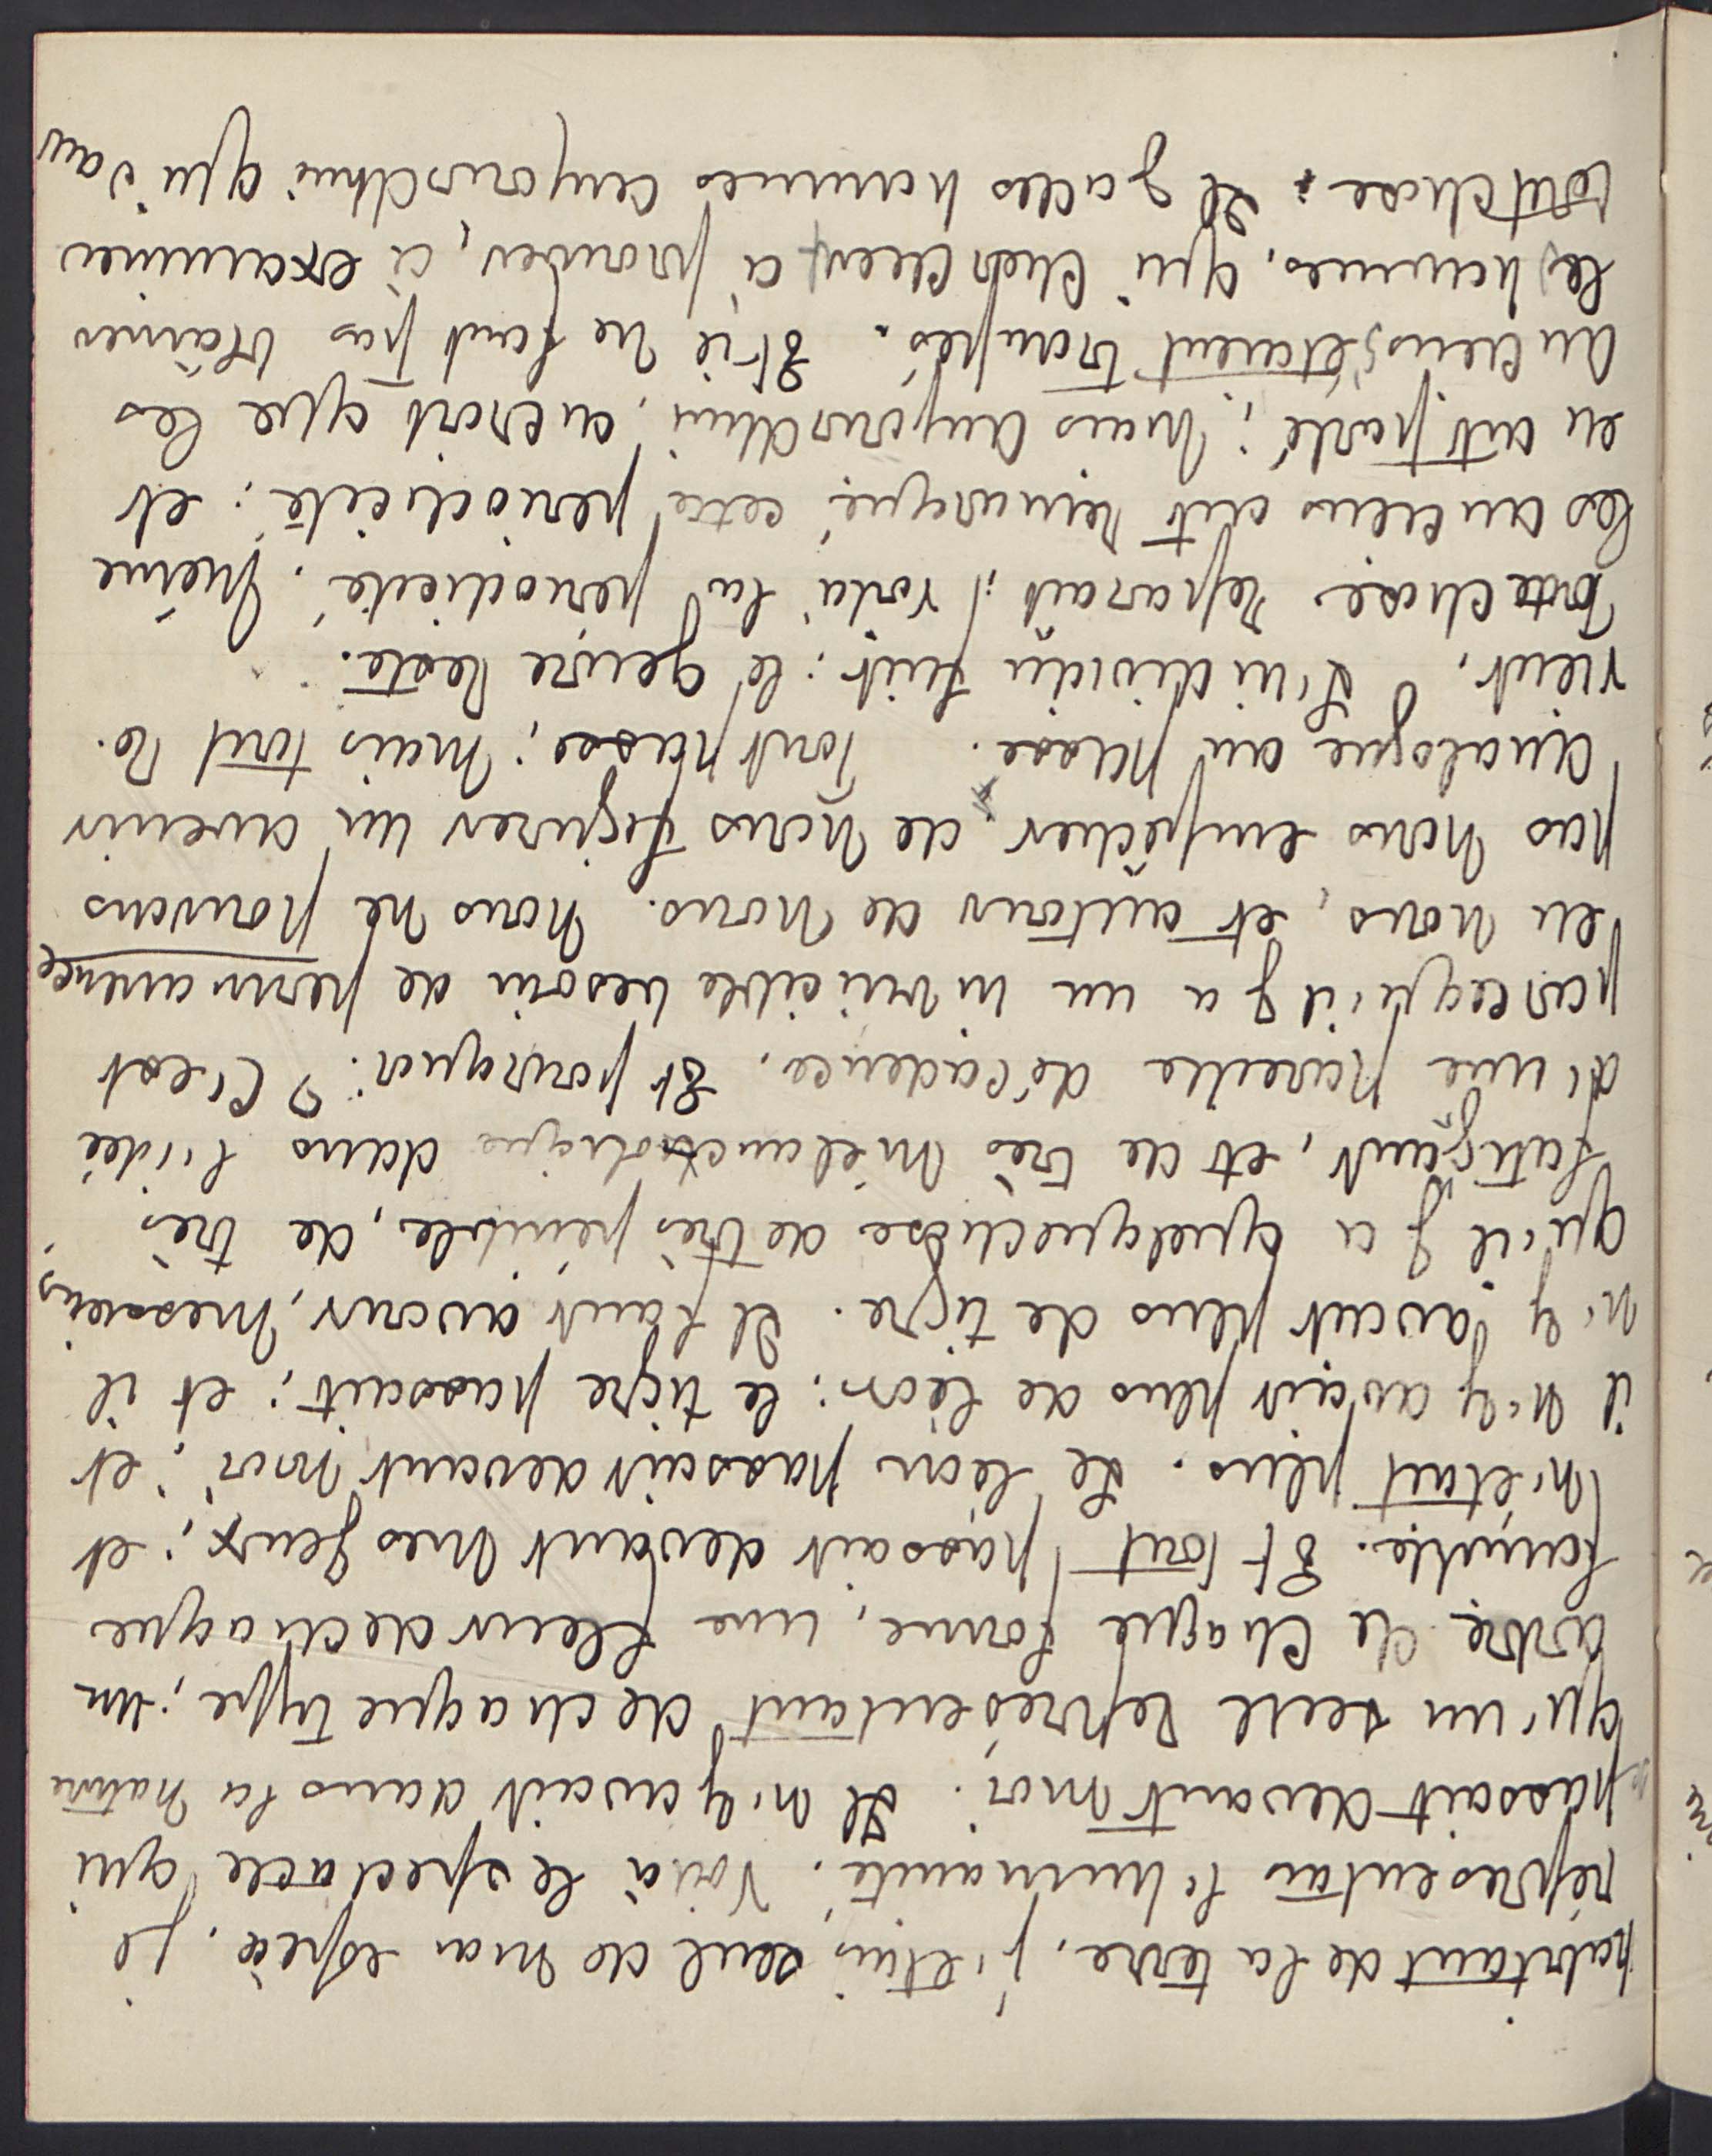 habitant de la terre, j'étais seul de mon espèce. je
représentais l'humanité. Voilà le spectacle qui
passait devant moi. Il n'y avait dans la nature
qu'un seul représentant de chaque type; un
arbre de chaque forme, une fleur de chaque
famille. Et tout passait devant mes yeux; et
n'était plus. Le lion passait devant moi; et
il n'y avait plus de lion: le tigre passait; et il
n'y avait plus de tigre. Il faut avouer, messieurs,
qu'il y a quelque chose de très pénible, de très
fatigant, et de très mélancholique dans l'idée
d'une pareille décadence. Et pourquoi? C'est
parcequ'il y a un invincible besoin de permanence
en nous, et autour de nous. Nous ne pouvons
pas nous empêcher de nous figurer un avenir
analogue au passé. Tout passe; mais tout re-
vient. L'individu fuit: le genre reste.
Toute chose reparait; voilà la periodicité. Même
les anciens ont remarqué cette periodicité: et
en ont parlé; mais aujourdhui, on croit que les
anciens s'étaient trompés. Et il ne faut pas blâmer
les hommes, qui cherchent à prouver, à examiner
tout chose: Il y a des hommes aujourdhui qui